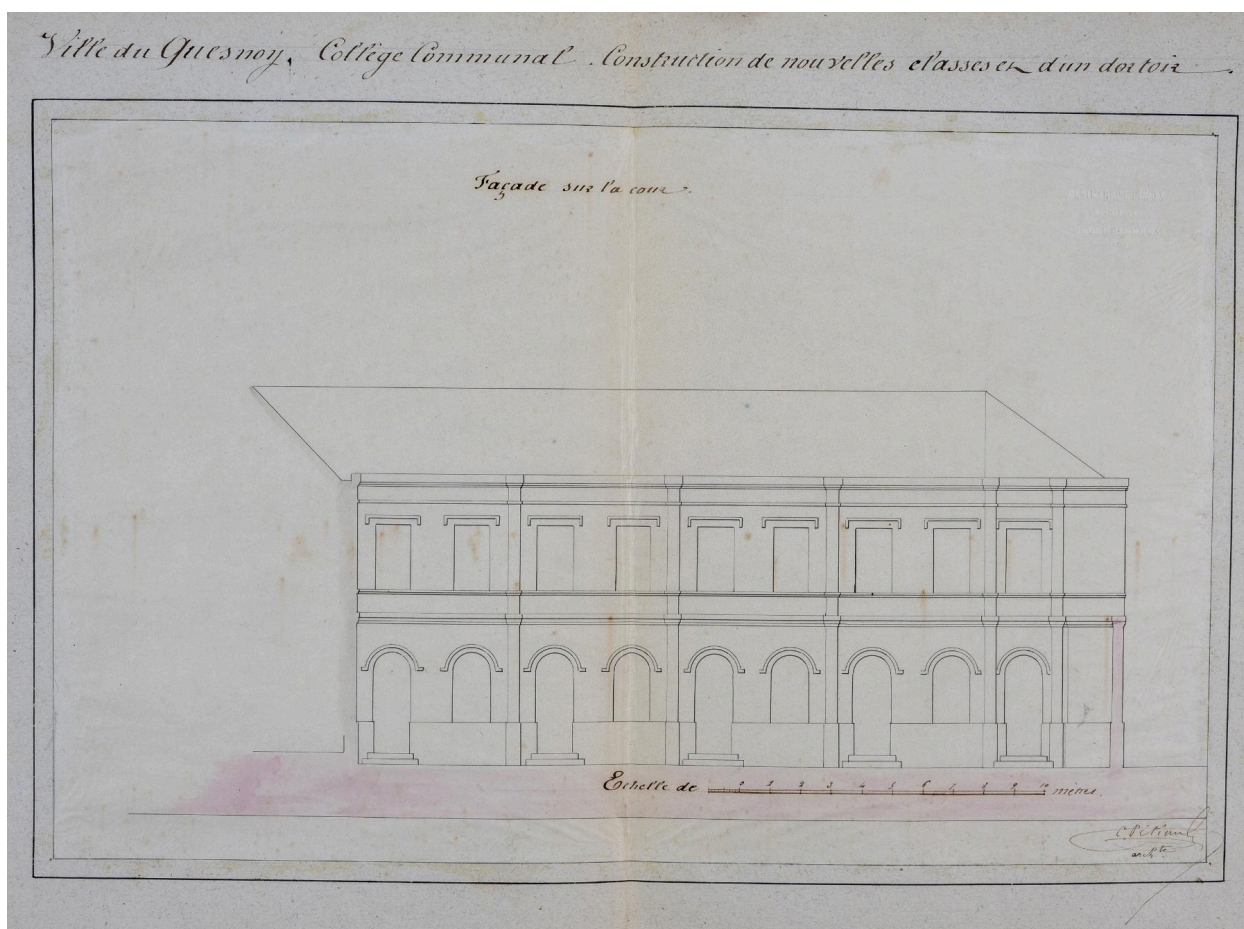 Ville du Quesnoy. Collège Communal. Construction de nouvelles classes et d'un dortoir.
Façade sur la cour.
Echelle de 0 1 2 3 4 5 6 7 8 9 10 mètres.
archte